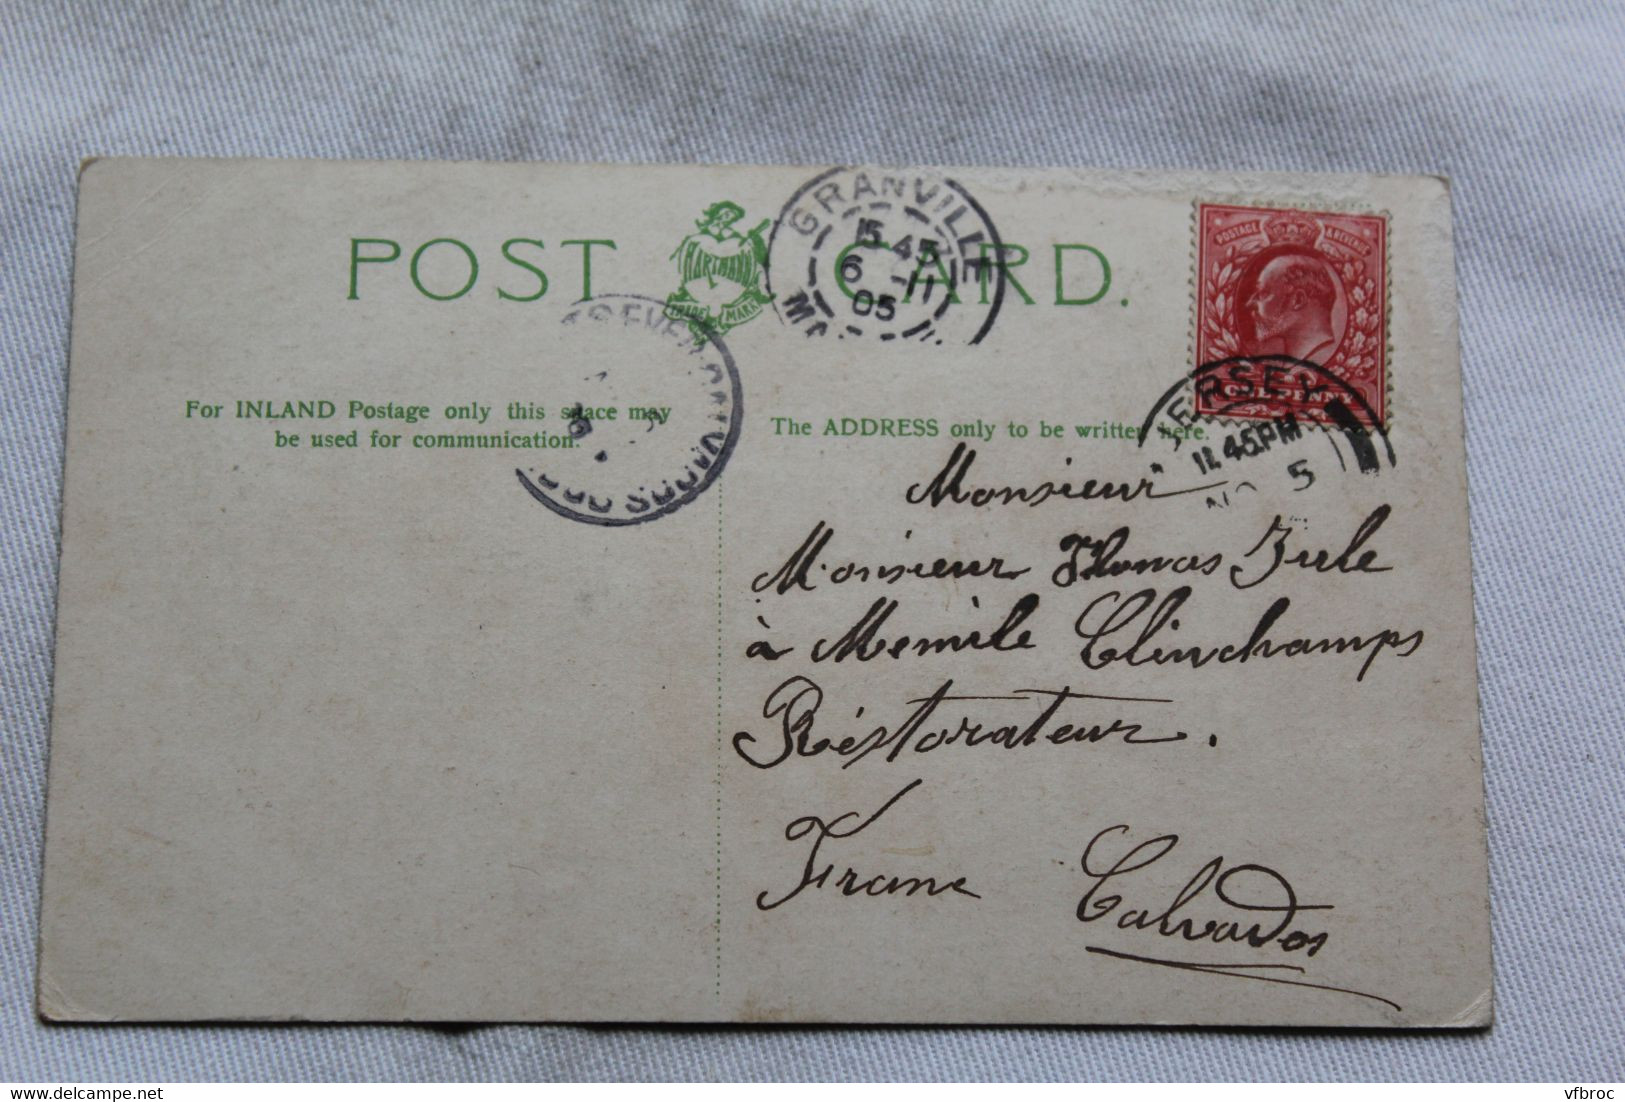 POST CARD.
HARTMANN
TRADE MARK
GRANVILLE
15 45
6 -11
05
POSTAGE & REVENUE
ONE PENNY
JERSEY
11.45PM
NO 5
For INLAND Postage only this space may
be used for communication.
The ADDRESS only to be written here.
Monsieur
Monsieur Thomas Jule
à Memile Clinchamps
Réstorateur.
France
Calvados
www.delcampe.net
vfbroc